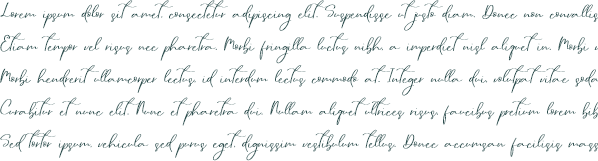 Lorem ipsum dolor sit amet, consectetur adipiscing elit. Suspendisse ut justo diam. Donec non convallis
Etiam tempor vel risus nec pharetra. Morbi fringilla luctus nibh, a imperdiet nisl aliquet in. Morbi
Morbi hendrerit ullamcorper lectus, id interdum lectus commodo at. Integer nulla dui, volutpat vitae soda
Curabitur et nunc elit. Nunc et pharetra dui. Nullam aliquet ultrices risus, faucibus pretium lorem bib
Sed tortor ipsum, vehicula sed purus eget, dignissim vestibulum tellus. Donec accumsan facilisis mass